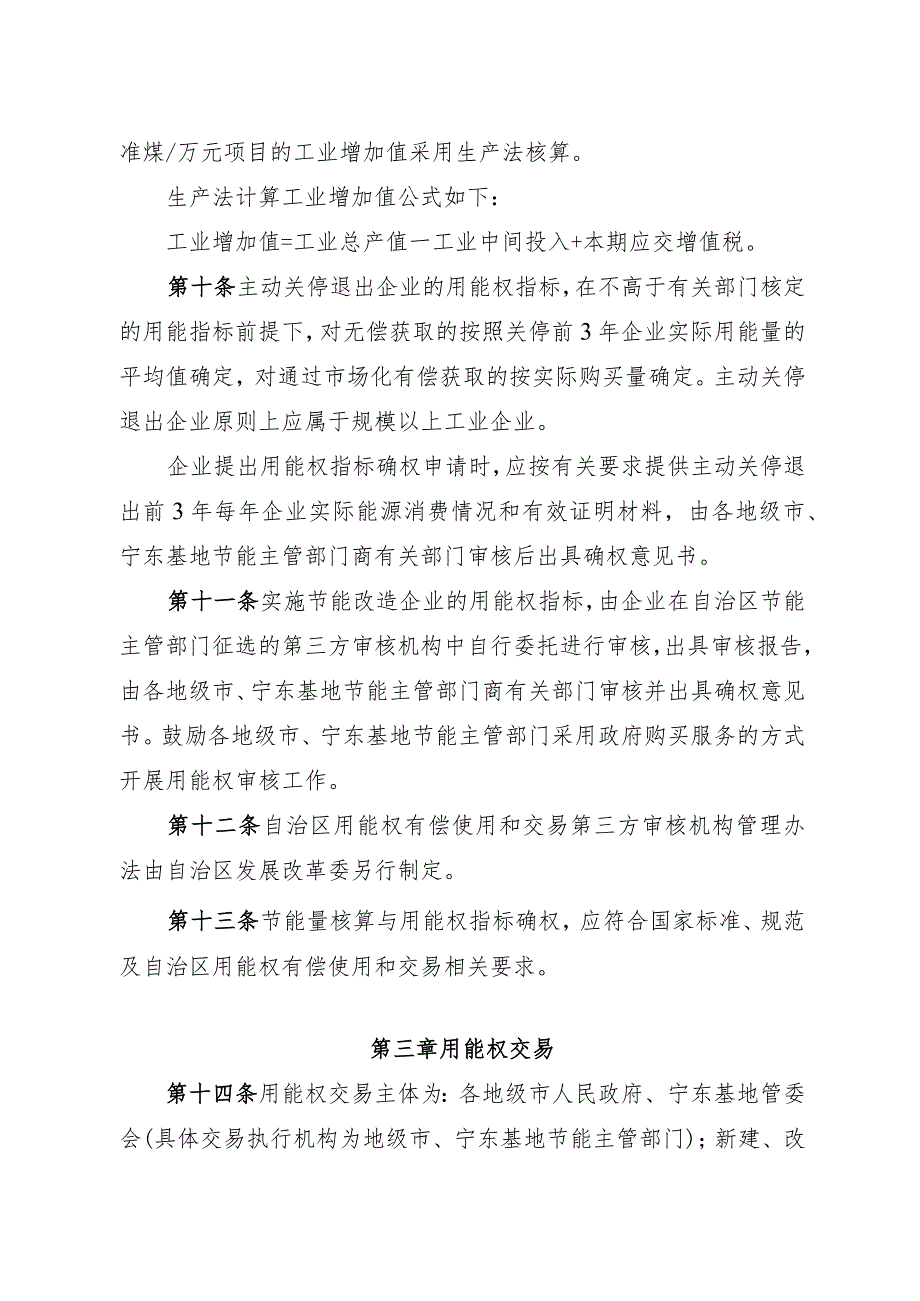 准煤/万元项目的工业增加值采用生产法核算。
生产法计算工业增加值公式如下：
工业增加值=工业总产值一工业中间投入+本期应交增值税。
第十条主动关停退出企业的用能权指标，在不高于有关部门核定
的用能指标前提下，对无偿获取的按照关停前3年企业实际用能量的
平均值确定，对通过市场化有偿获取的按实际购买量确定。主动关停
退出企业原则上应属于规模以上工业企业。
企业提出用能权指标确权申请时，应按有关要求提供主动关停退
出前3年每年企业实际能源消费情况和有效证明材料，由各地级市、
宁东基地节能主管部门商有关部门审核后出具确权意见书。
第十一条实施节能改造企业的用能权指标，由企业在自治区节能
主管部门征选的第三方审核机构中自行委托进行审核，出具审核报告，
由各地级市、宁东基地节能主管部门商有关部门审核并出具确权意见
书。鼓励各地级市、宁东基地节能主管部门采用政府购买服务的方式
开展用能权审核工作。
第十二条自治区用能权有偿使用和交易第三方审核机构管理办
法由自治区发展改革委另行制定。
第十三条节能量核算与用能权指标确权，应符合国家标准、规范
及自治区用能权有偿使用和交易相关要求。
第三章用能权交易
第十四条用能权交易主体为：各地级市人民政府、宁东基地管委
会(具体交易执行机构为地级市、宁东基地节能主管部门)；新建、改